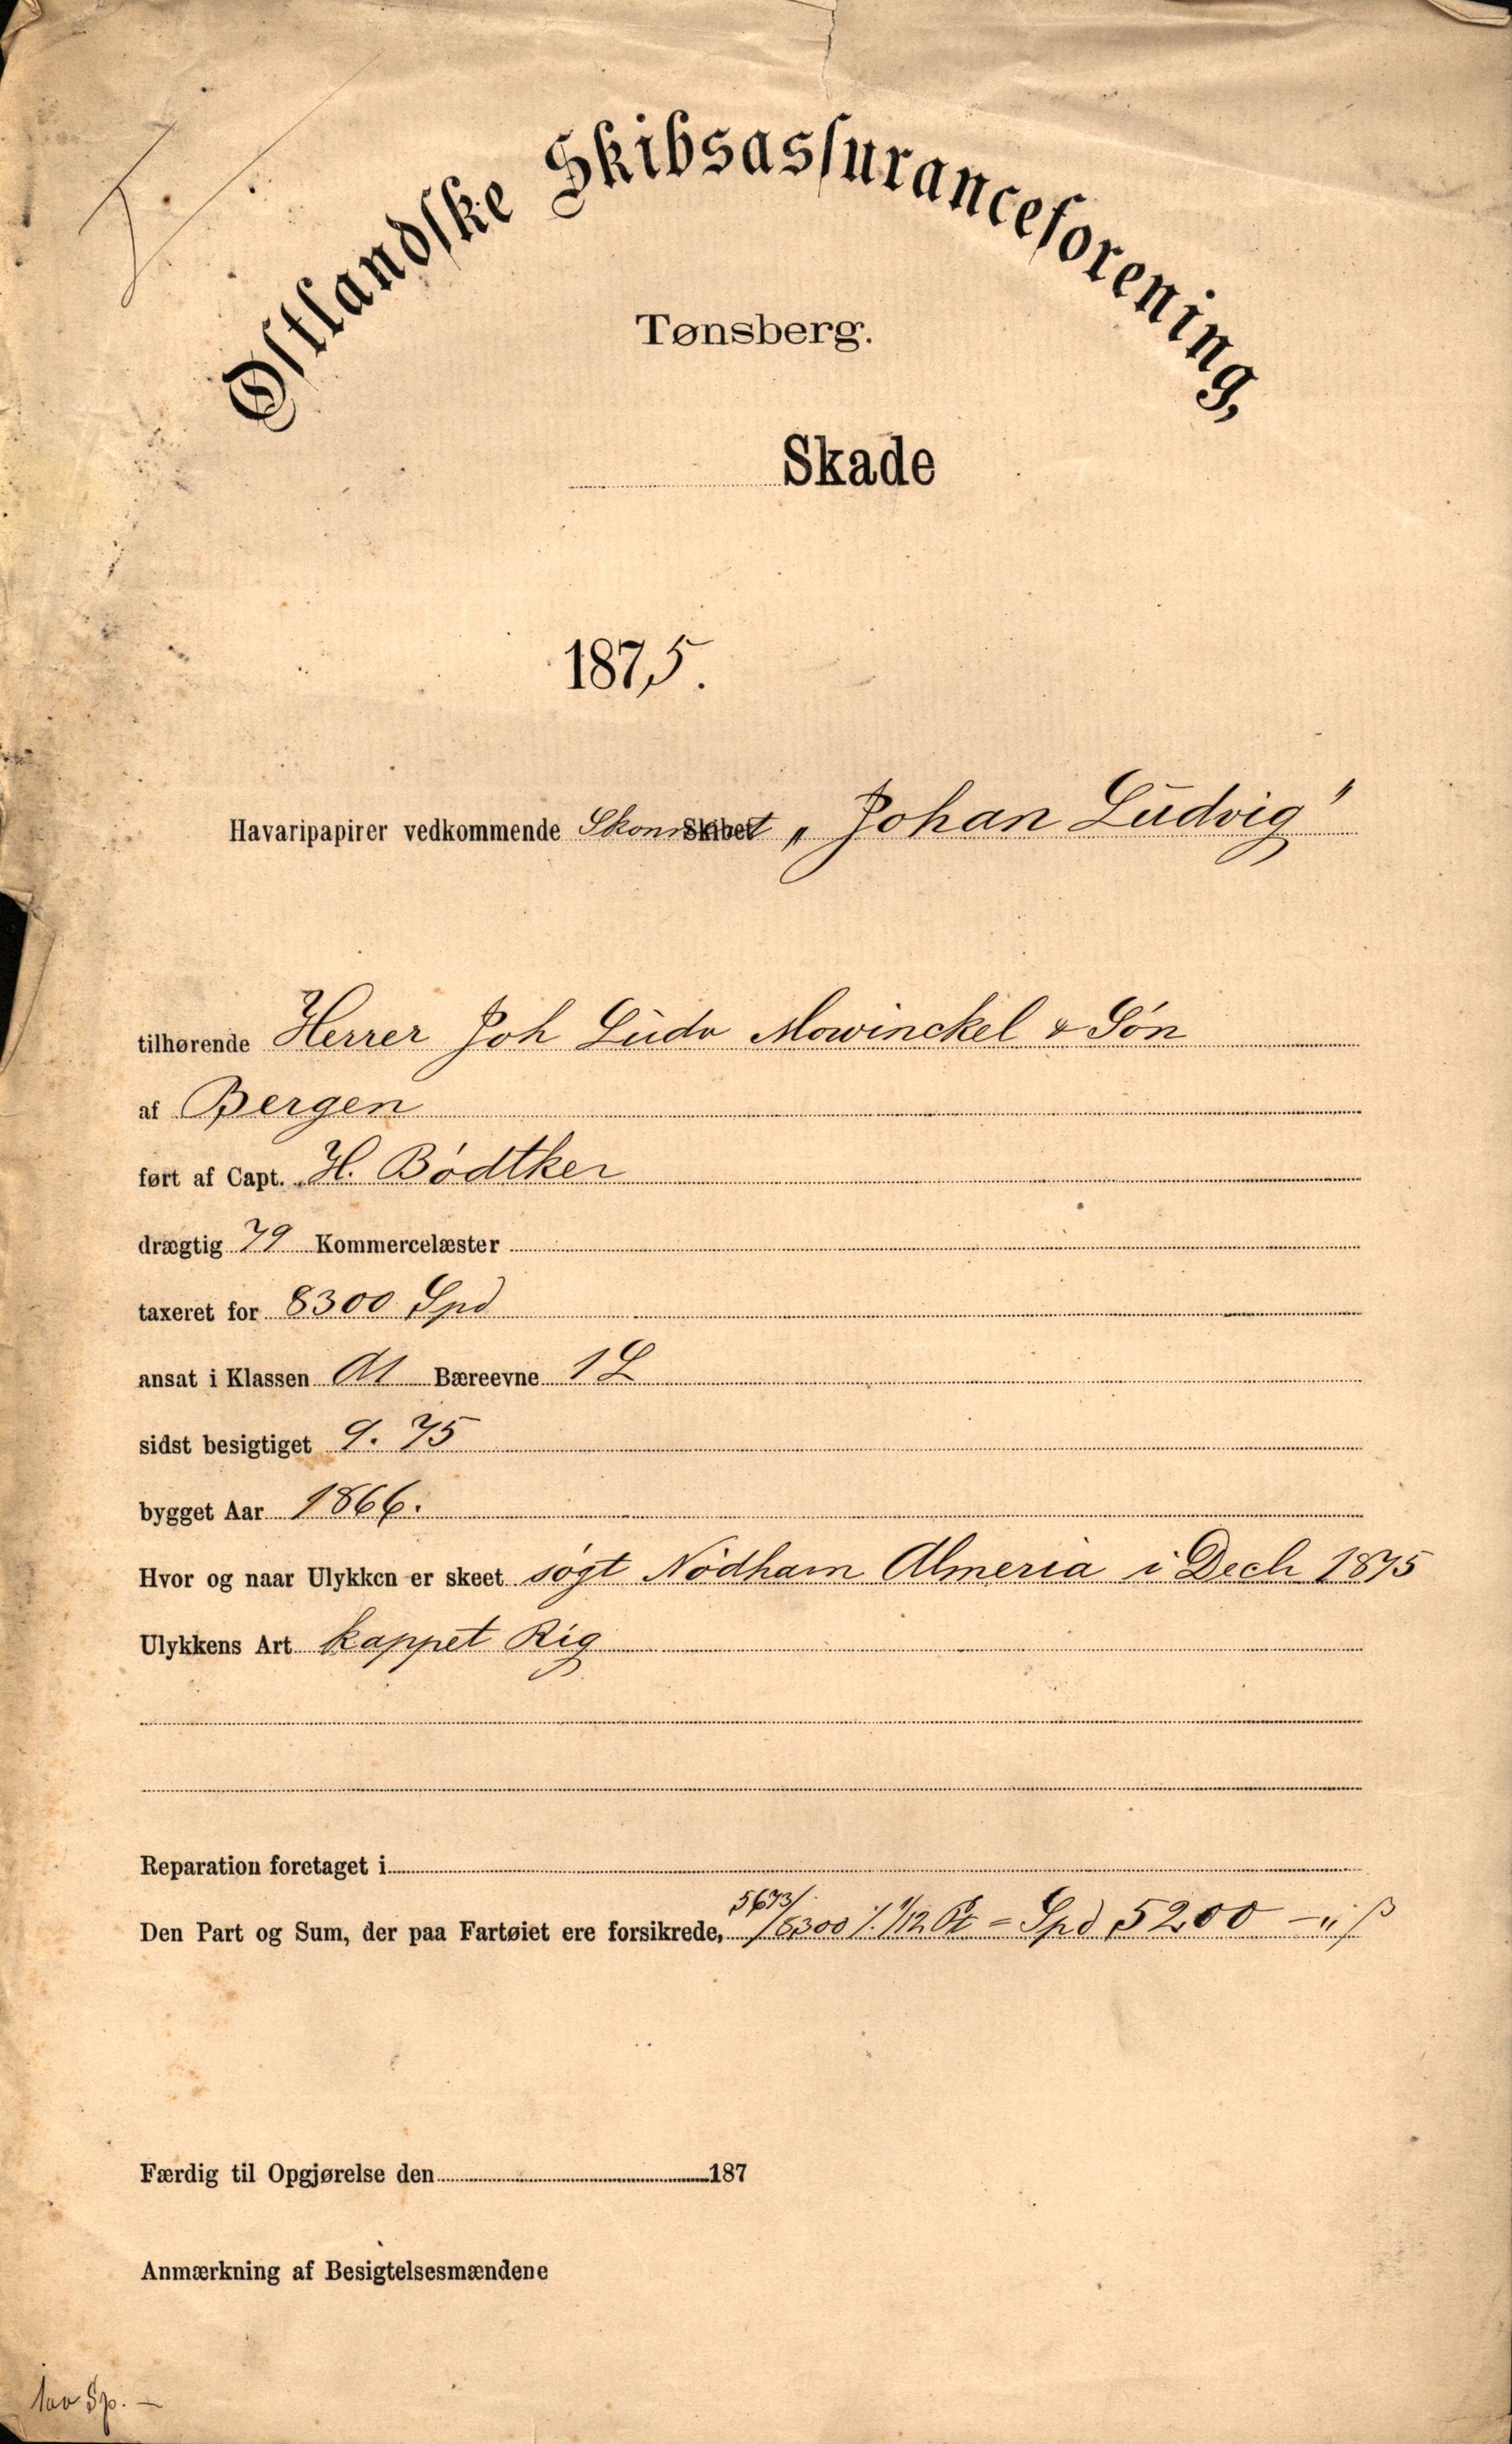 Østlandske Skibsassuranceforening,
Tønsberg.
Skade
1875.
Havaripapirer vedkommende Skonnertet „Johan Ludvig"
tilhørende Herrer Joh Ludv Mowinckel & Søn
af Bergen
ført af Capt. H. Bødtker
drægtig 79 Kommercelæster
taxeret for 8300 Spd
ansat i Klassen A1 Bæreevne 1 L
sidst besigtiget 9. 75
bygget Aar 1866.
Hvor og naar Ulykken er skeet søgt Nødhavn Almeria i Decb 1875
Ulykkens Art kappet Rig
Reparation foretaget i
Den Part og Sum, der paa Fartøiet ere forsikrede, 5673/8300 1/12 Pt = Spd 5200 - " ß
Færdig til Opgjørelse den 187
Anmærkning af Besigtelsesmændene
100 Sp. —